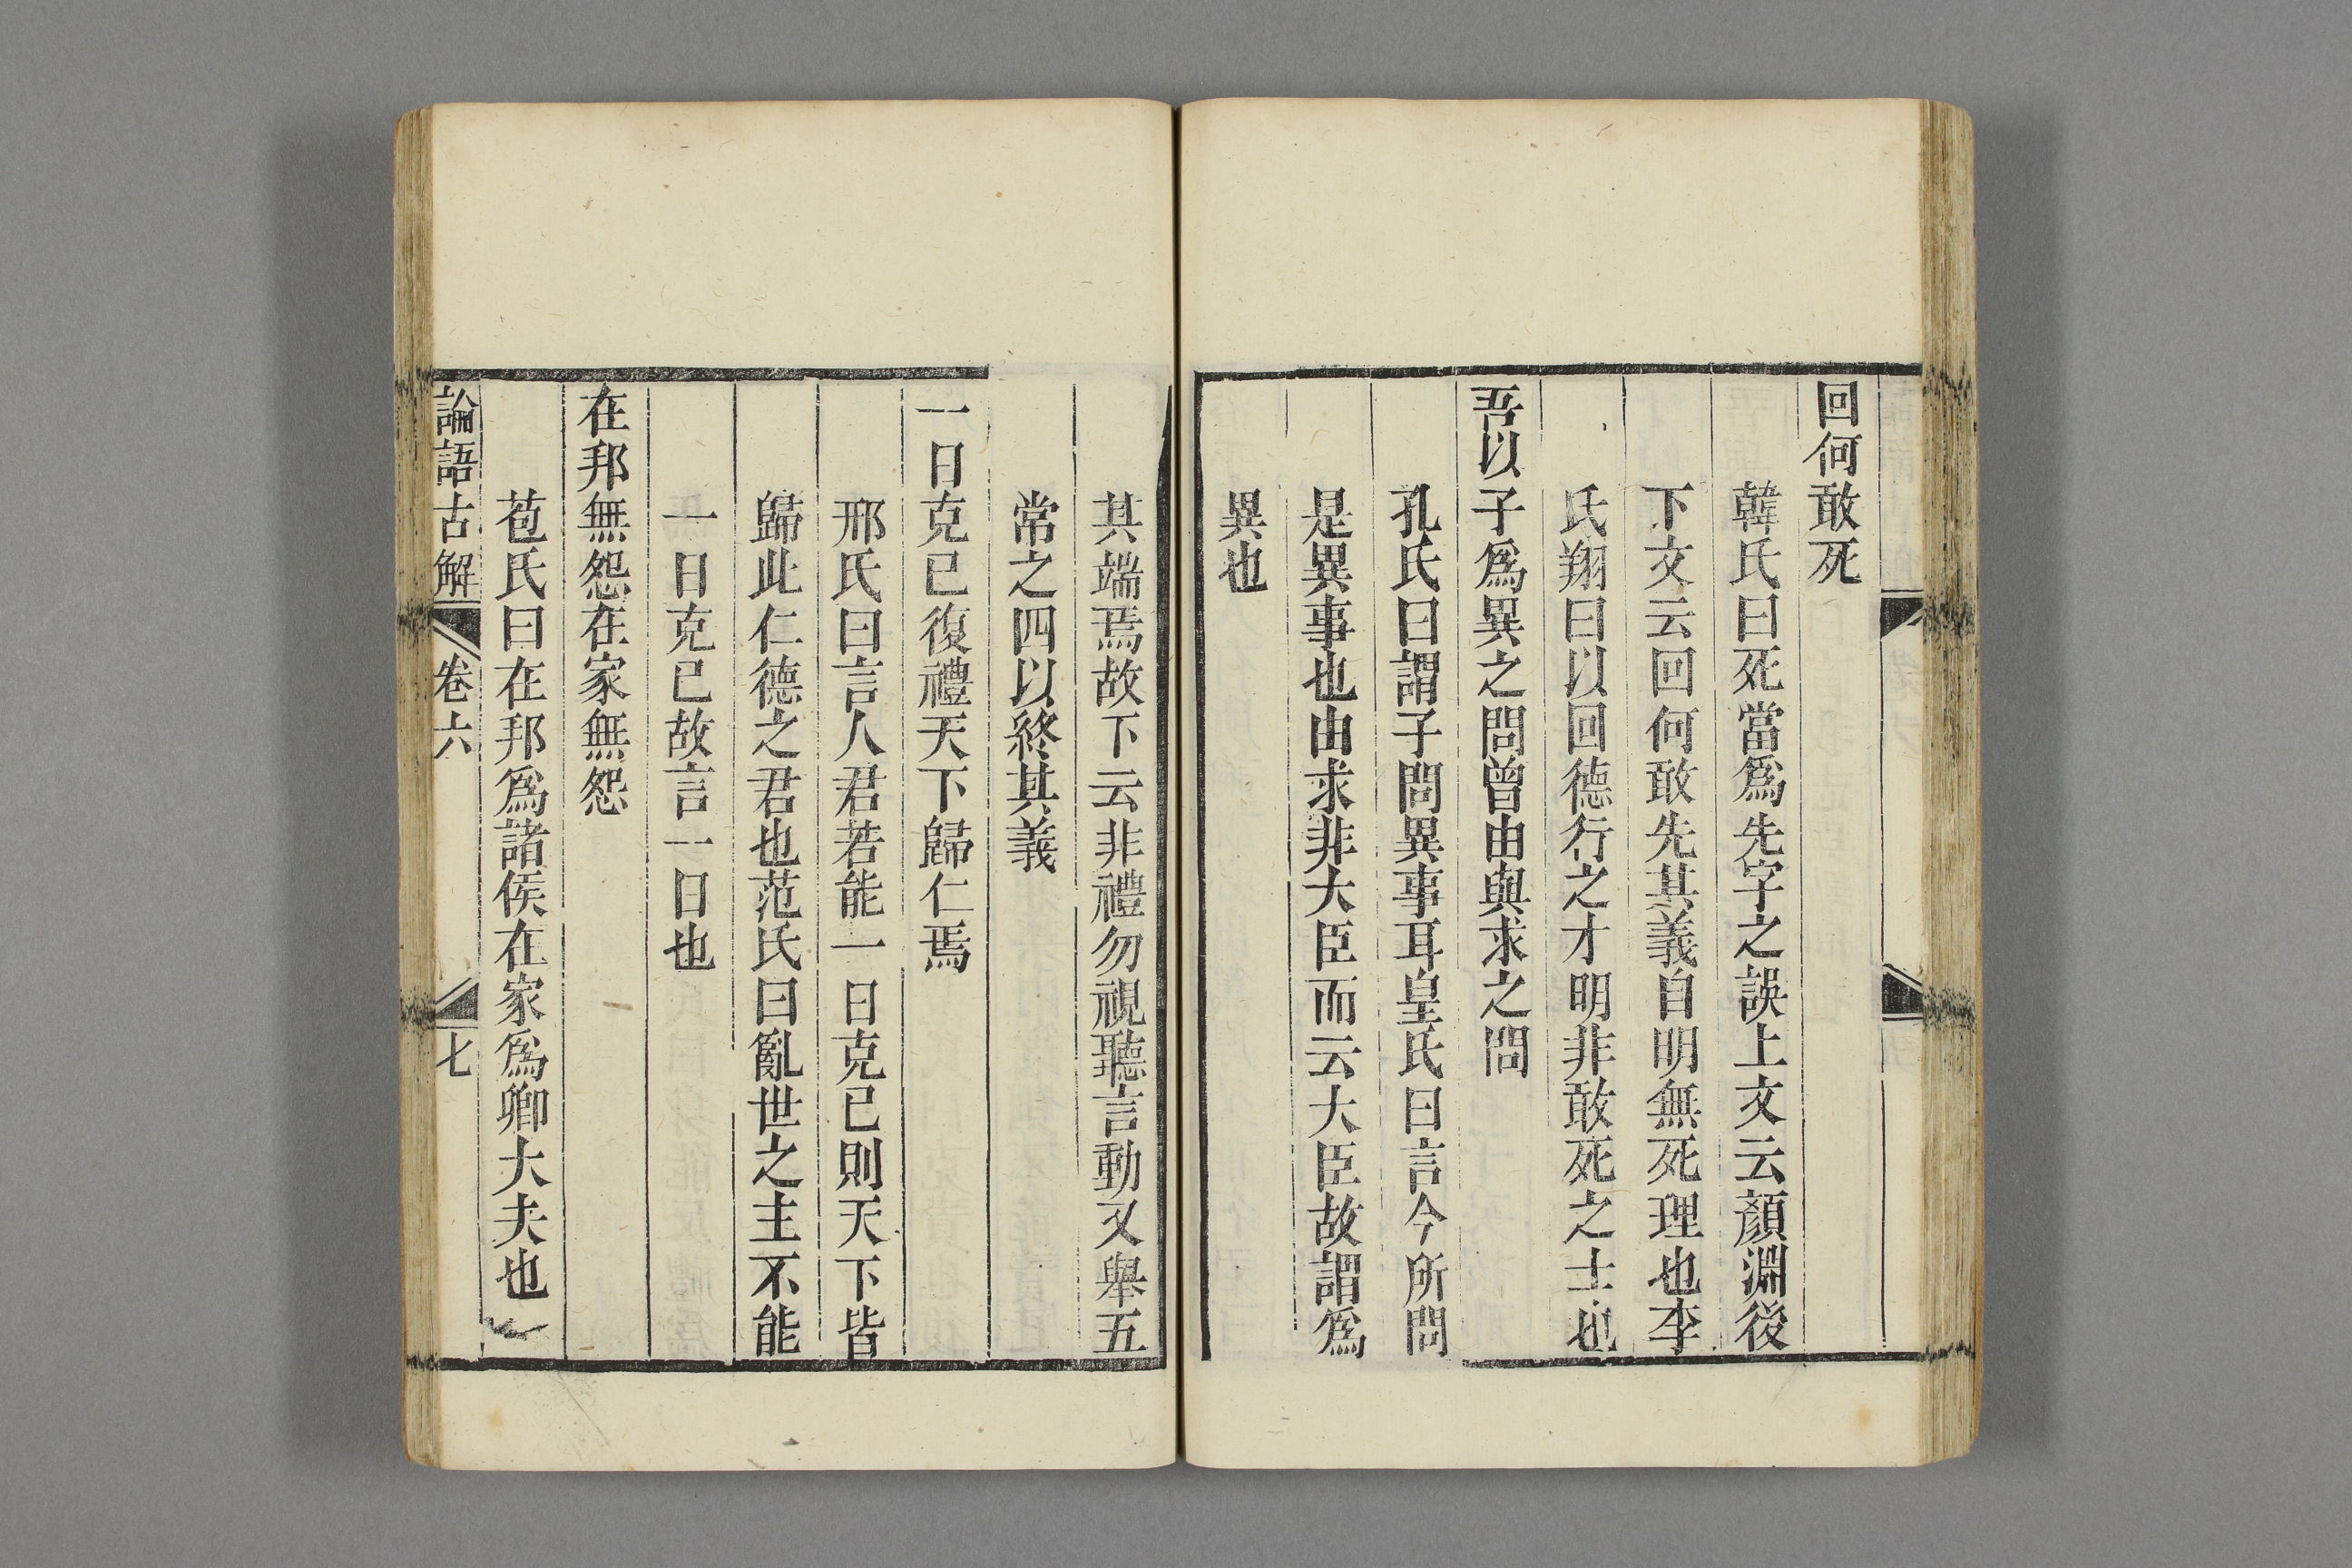 回何敢死
韓氏曰死當爲先字之誤上文云顏淵後
下文云回何敢先其義自明無死理也李
氏翔曰以回德行之才明非敢死之士也
吾以子爲異之問曾由與求之問
孔氏曰謂子問異事耳皇氏曰言今所問
是異事也由求非大臣而云大臣故謂爲
異也
其端焉故下云非禮勿視聽言動又舉五
常之四以終其義
一日克已復禮天下歸仁焉
邢氏曰言人君若能一日克已則天下皆
歸此仁德之君也范氏曰亂世之主不能
一日克已故言一日也
在邦無怨在家無怨
苞氏曰在邦爲諸侯在家爲卿大夫也
論語古解 卷六 七